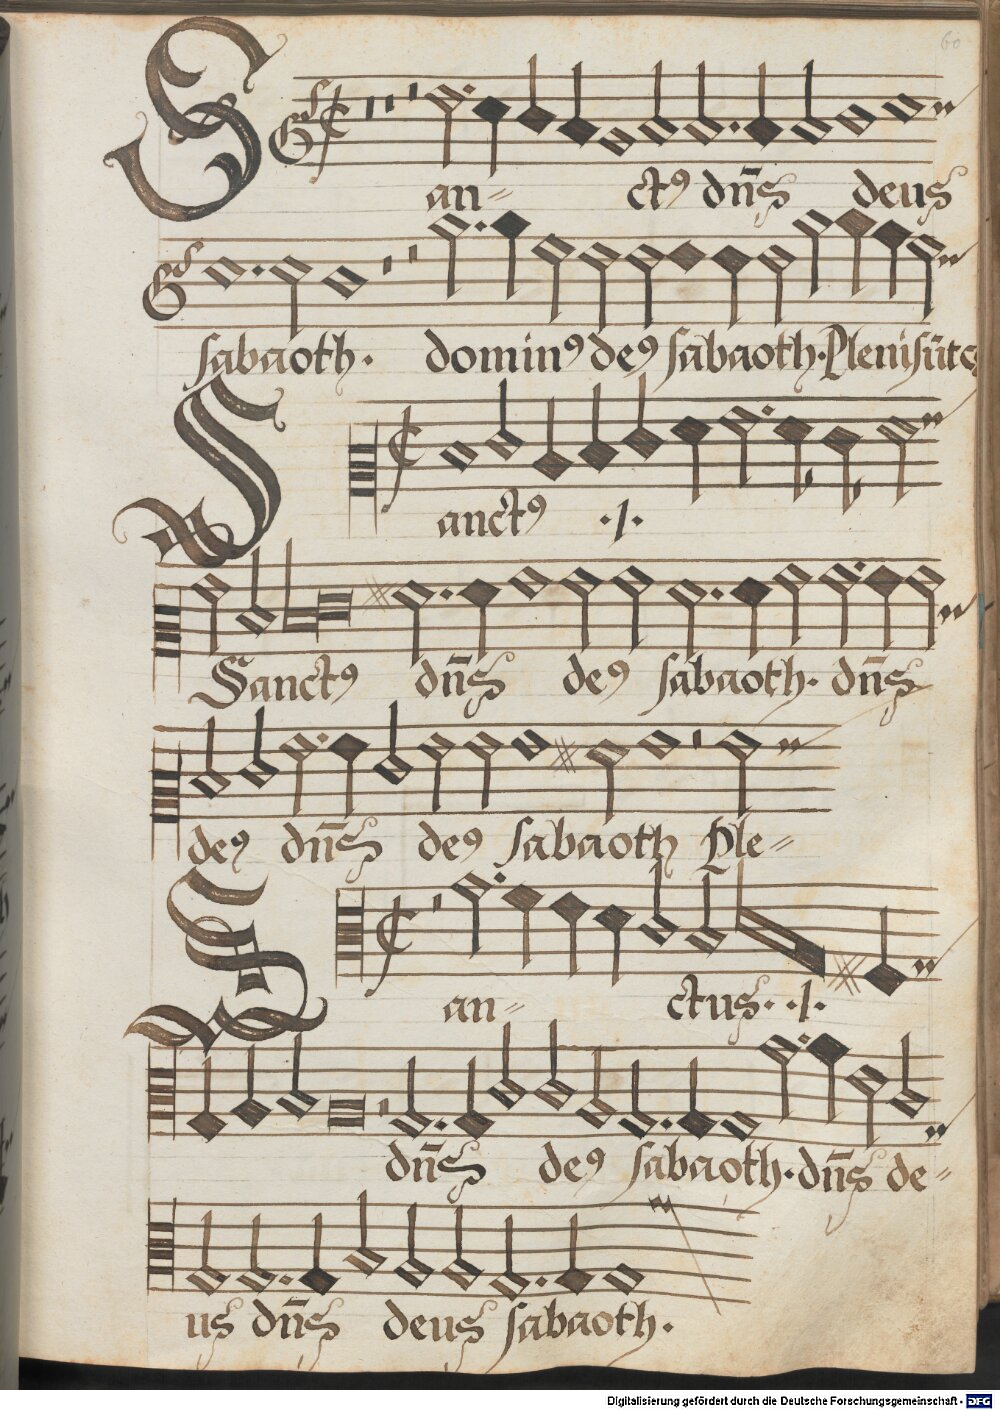 60
San- ctꝰ dn̄s deus
sabaoth. dominꝰ deꝰ sabaoth. Pleni sūt c
Sanctꝰ ·/·
Sanctꝰ dn̄s deꝰ sabaoth. dn̄s
deꝰ dn̄s deꝰ sabaoth Ple-
San- ctus. ·/·
dn̄s deꝰ sabaoth. dn̄s de-
us dn̄s deus sabaoth.
Digitalisierung gefördert durch die Deutsche Forschungsgemeinschaft - DFG